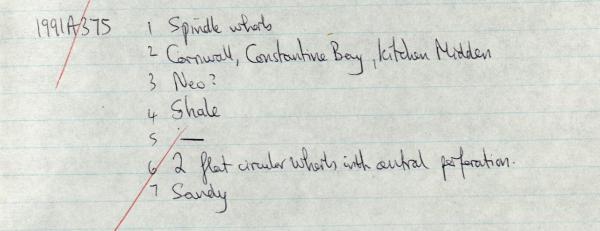 1991A375 1 Spindle whorls
2 Cornwall, Constantine Bay, kitchen Midden
3 Neo?
4 Shale
5 —
6 2 flat circular whorls with central perforation.
7 Sandy